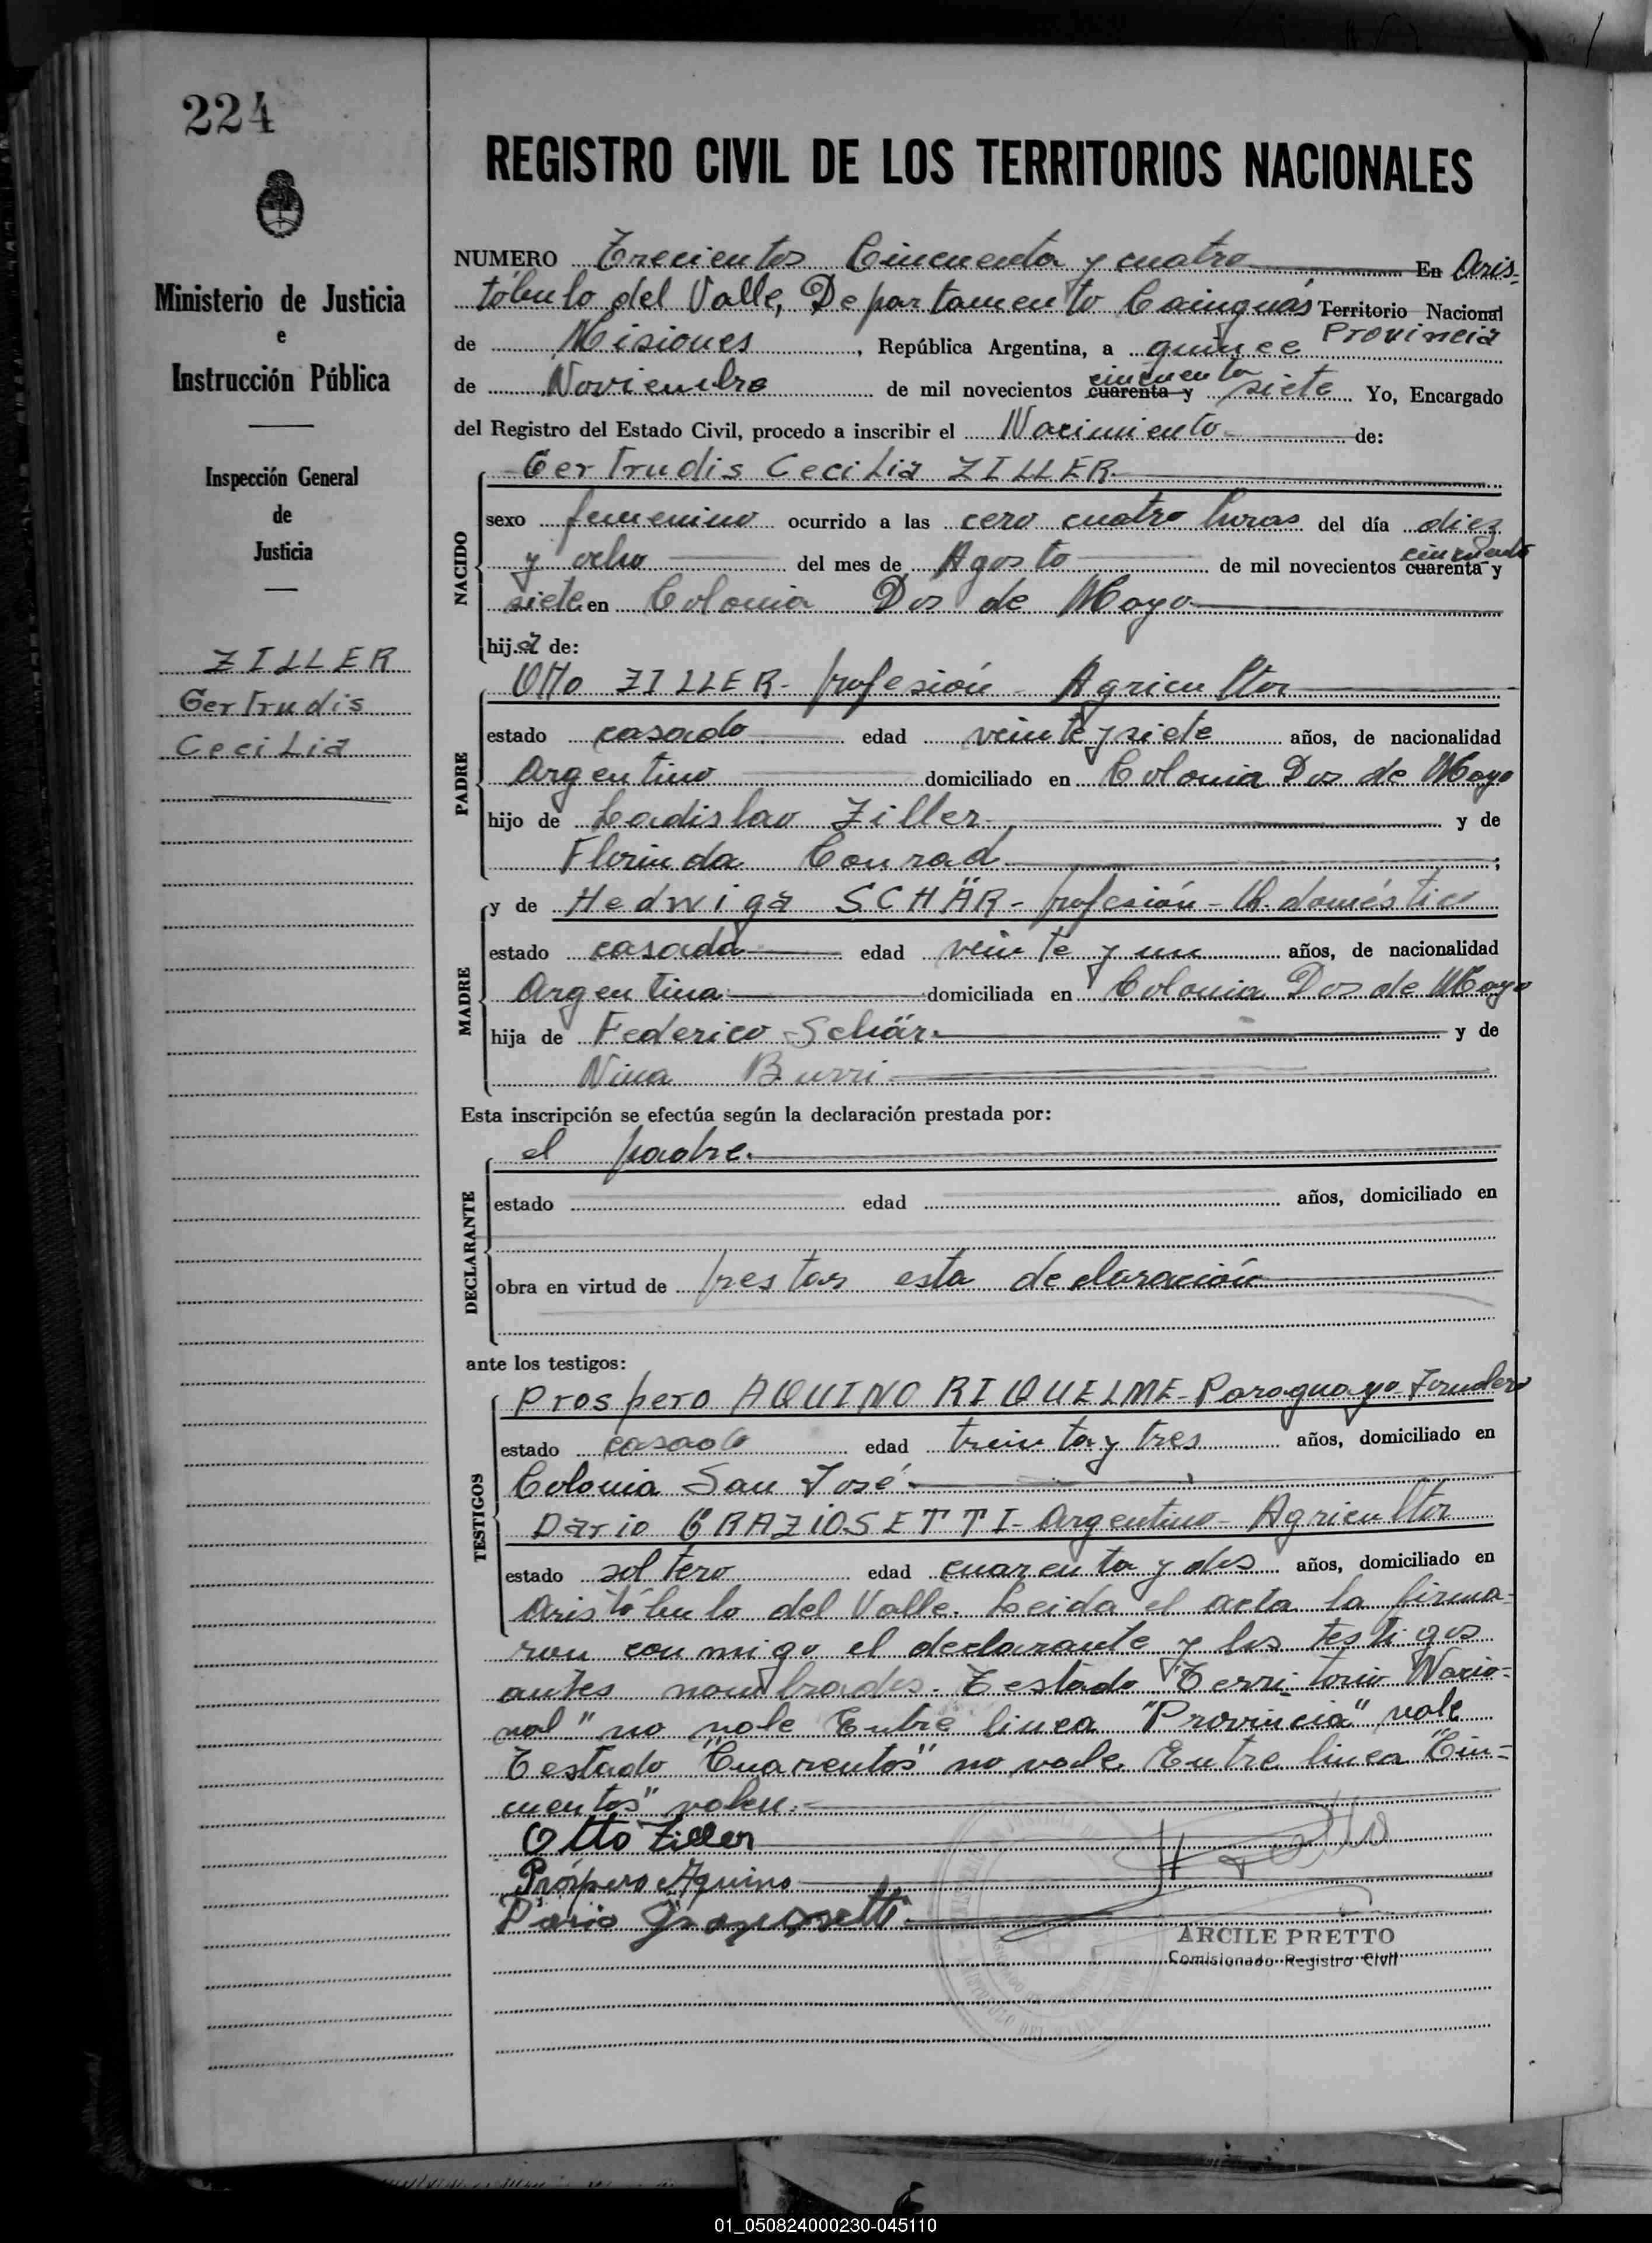 224
REGISTRO CIVIL DE LOS TERRITORIOS NACIONALES
Ministerio de Justicia
e
Instrucción Pública
Inspección General
de
Justicia
ZILLER
Gertrudis
Cecilia
NUMERO Trecientos Cincuenta y cuatro En Aris-
tóbulo del Valle, Departamento Cainguás Territorio Nacional
Provincia
de Misiones, República Argentina, a quince
cincuenta
de Noviembre de mil novecientos cuarenta y siete Yo, Encargado
del Registro del Estado Civil, procedo a inscribir el Nacimiento de:
NACIDO
Gertrudis Cecilia ZILLER
sexo femenino ocurrido a las cero cuatro horas del día diez
cincuenta
y ocho del mes de Agosto de mil novecientos cuarenta y
siete en Colonia Dos de Mayo
hija de:
PADRE
Otto ZILLER - profesión - Agricultor
estado casado edad veinte y siete años, de nacionalidad
Argentino domiciliado en Colonia Dos de Mayo
hijo de Ladislao Ziller y de
Florinda Conrad ;
MADRE
y de Hedwiga SCHÄR - profesión - Q. doméstico
estado casada edad veinte y un años, de nacionalidad
Argentina domiciliada en Colonia Dos de Mayo
hija de Federico Schär y de
Nina Burri
Esta inscripción se efectúa según la declaración prestada por:
DECLARANTE
el padre.
estado edad años, domiciliado en
obra en virtud de prestar esta declaración
ante los testigos:
TESTIGOS
Prospero AQUINO RIQUELME - Paraguayo - Jornalero
estado casado edad treinta y tres años, domiciliado en
Colonia San José.
Dario GRAZIOSETTI - Argentino - Agricultor
estado soltero edad cuarenta y dos años, domiciliado en
Aristóbulo del Valle. Leida el acta la firma-
ron conmigo el declarante y los testigos
antes nombrados. Testado "Territorio Nacio-
nal" no vale Entre linea "Provincia" vale
Testado "Cuarentas" no vale. Entre linea "Cin-
cuentas" valen.
Otto Ziller
Próspero Aquino
Dario Graziosetti
ARCILE PRETTO
Comisionado Registro Civil
01_050824000230-045110